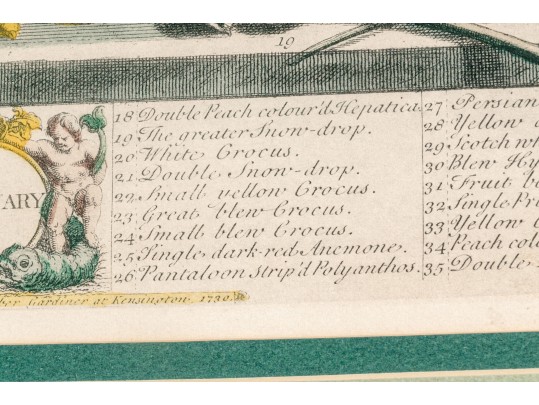 19
18 Double Peach colour'd Hepatica.
19 The greater Snow-drop.
20 White Crocus.
21 Double Snow-drop.
22 Small yellow Crocus.
23 Great blew Crocus.
24 Small blew Crocus.
25 Single dark-red Anemone.
26 Pantaloon strip'd Polyanthos.
27 Persian
28 Yellow
29 Scotch wh
30 Blew Hy
31 Fruit be
32 Single Pr
33 Yellow
34 Peach colo
35 Double
UARY
ber Gardiner at Kensington, 1730.